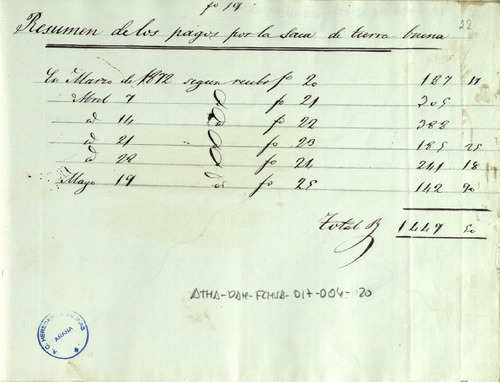 fo 19
22
Resumen de los pagos por la saca de tierra buena
En Marzo de 1872 segun recibo fo 20 187 17
Abril 7 id fo 21 305
id 14 id fo 22 388
id 21 id fo 23 185 25
id 28 id fo 24 241 18
Mayo 19 id fo 25 142 90
Total R 1449 50
ATHA-DAH-FCHSA-017-004-20
ARAÑA